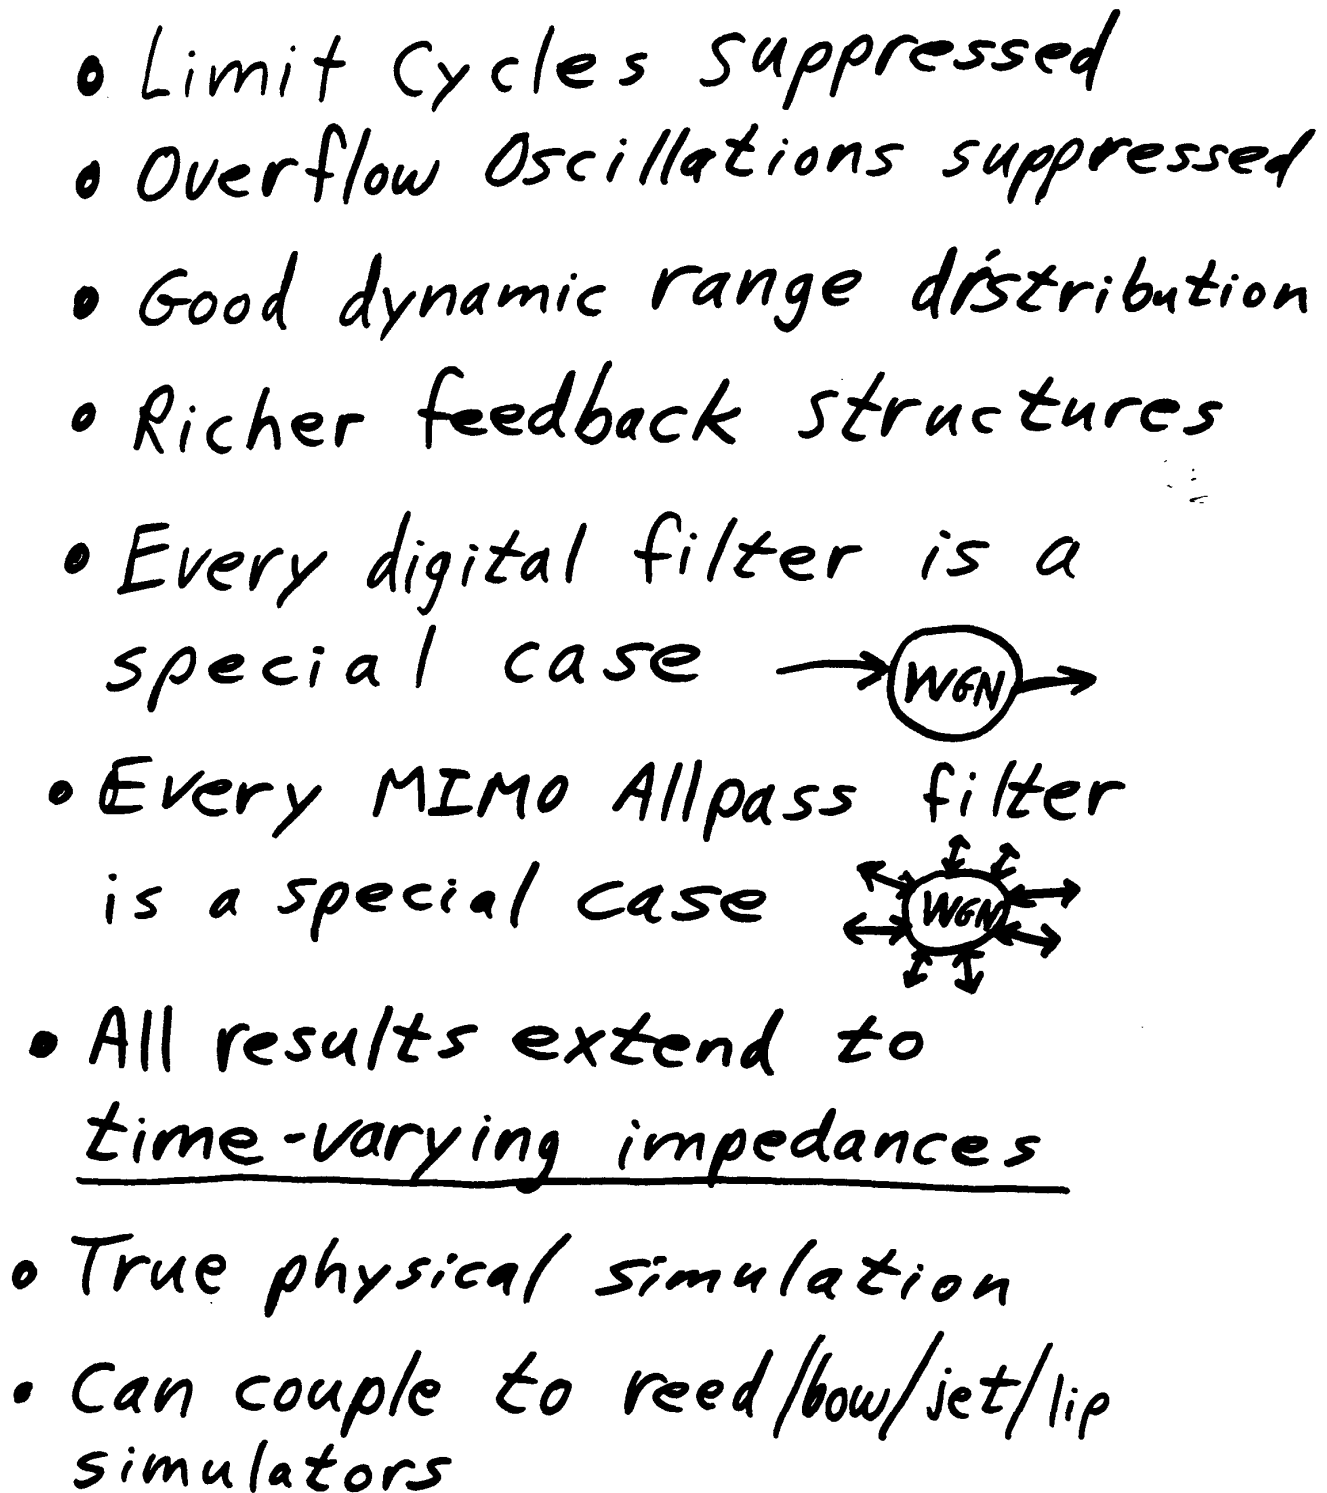 • Limit Cycles suppressed
• Overflow Oscillations suppressed
• Good dynamic range distribution
• Richer feedback structures
• Every digital filter is a
special case → WGN →
• Every MIMO Allpass filter
is a special case WGN
• All results extend to
time-varying impedances
• True physical simulation
• Can couple to reed/bow/jet/lip
simulators